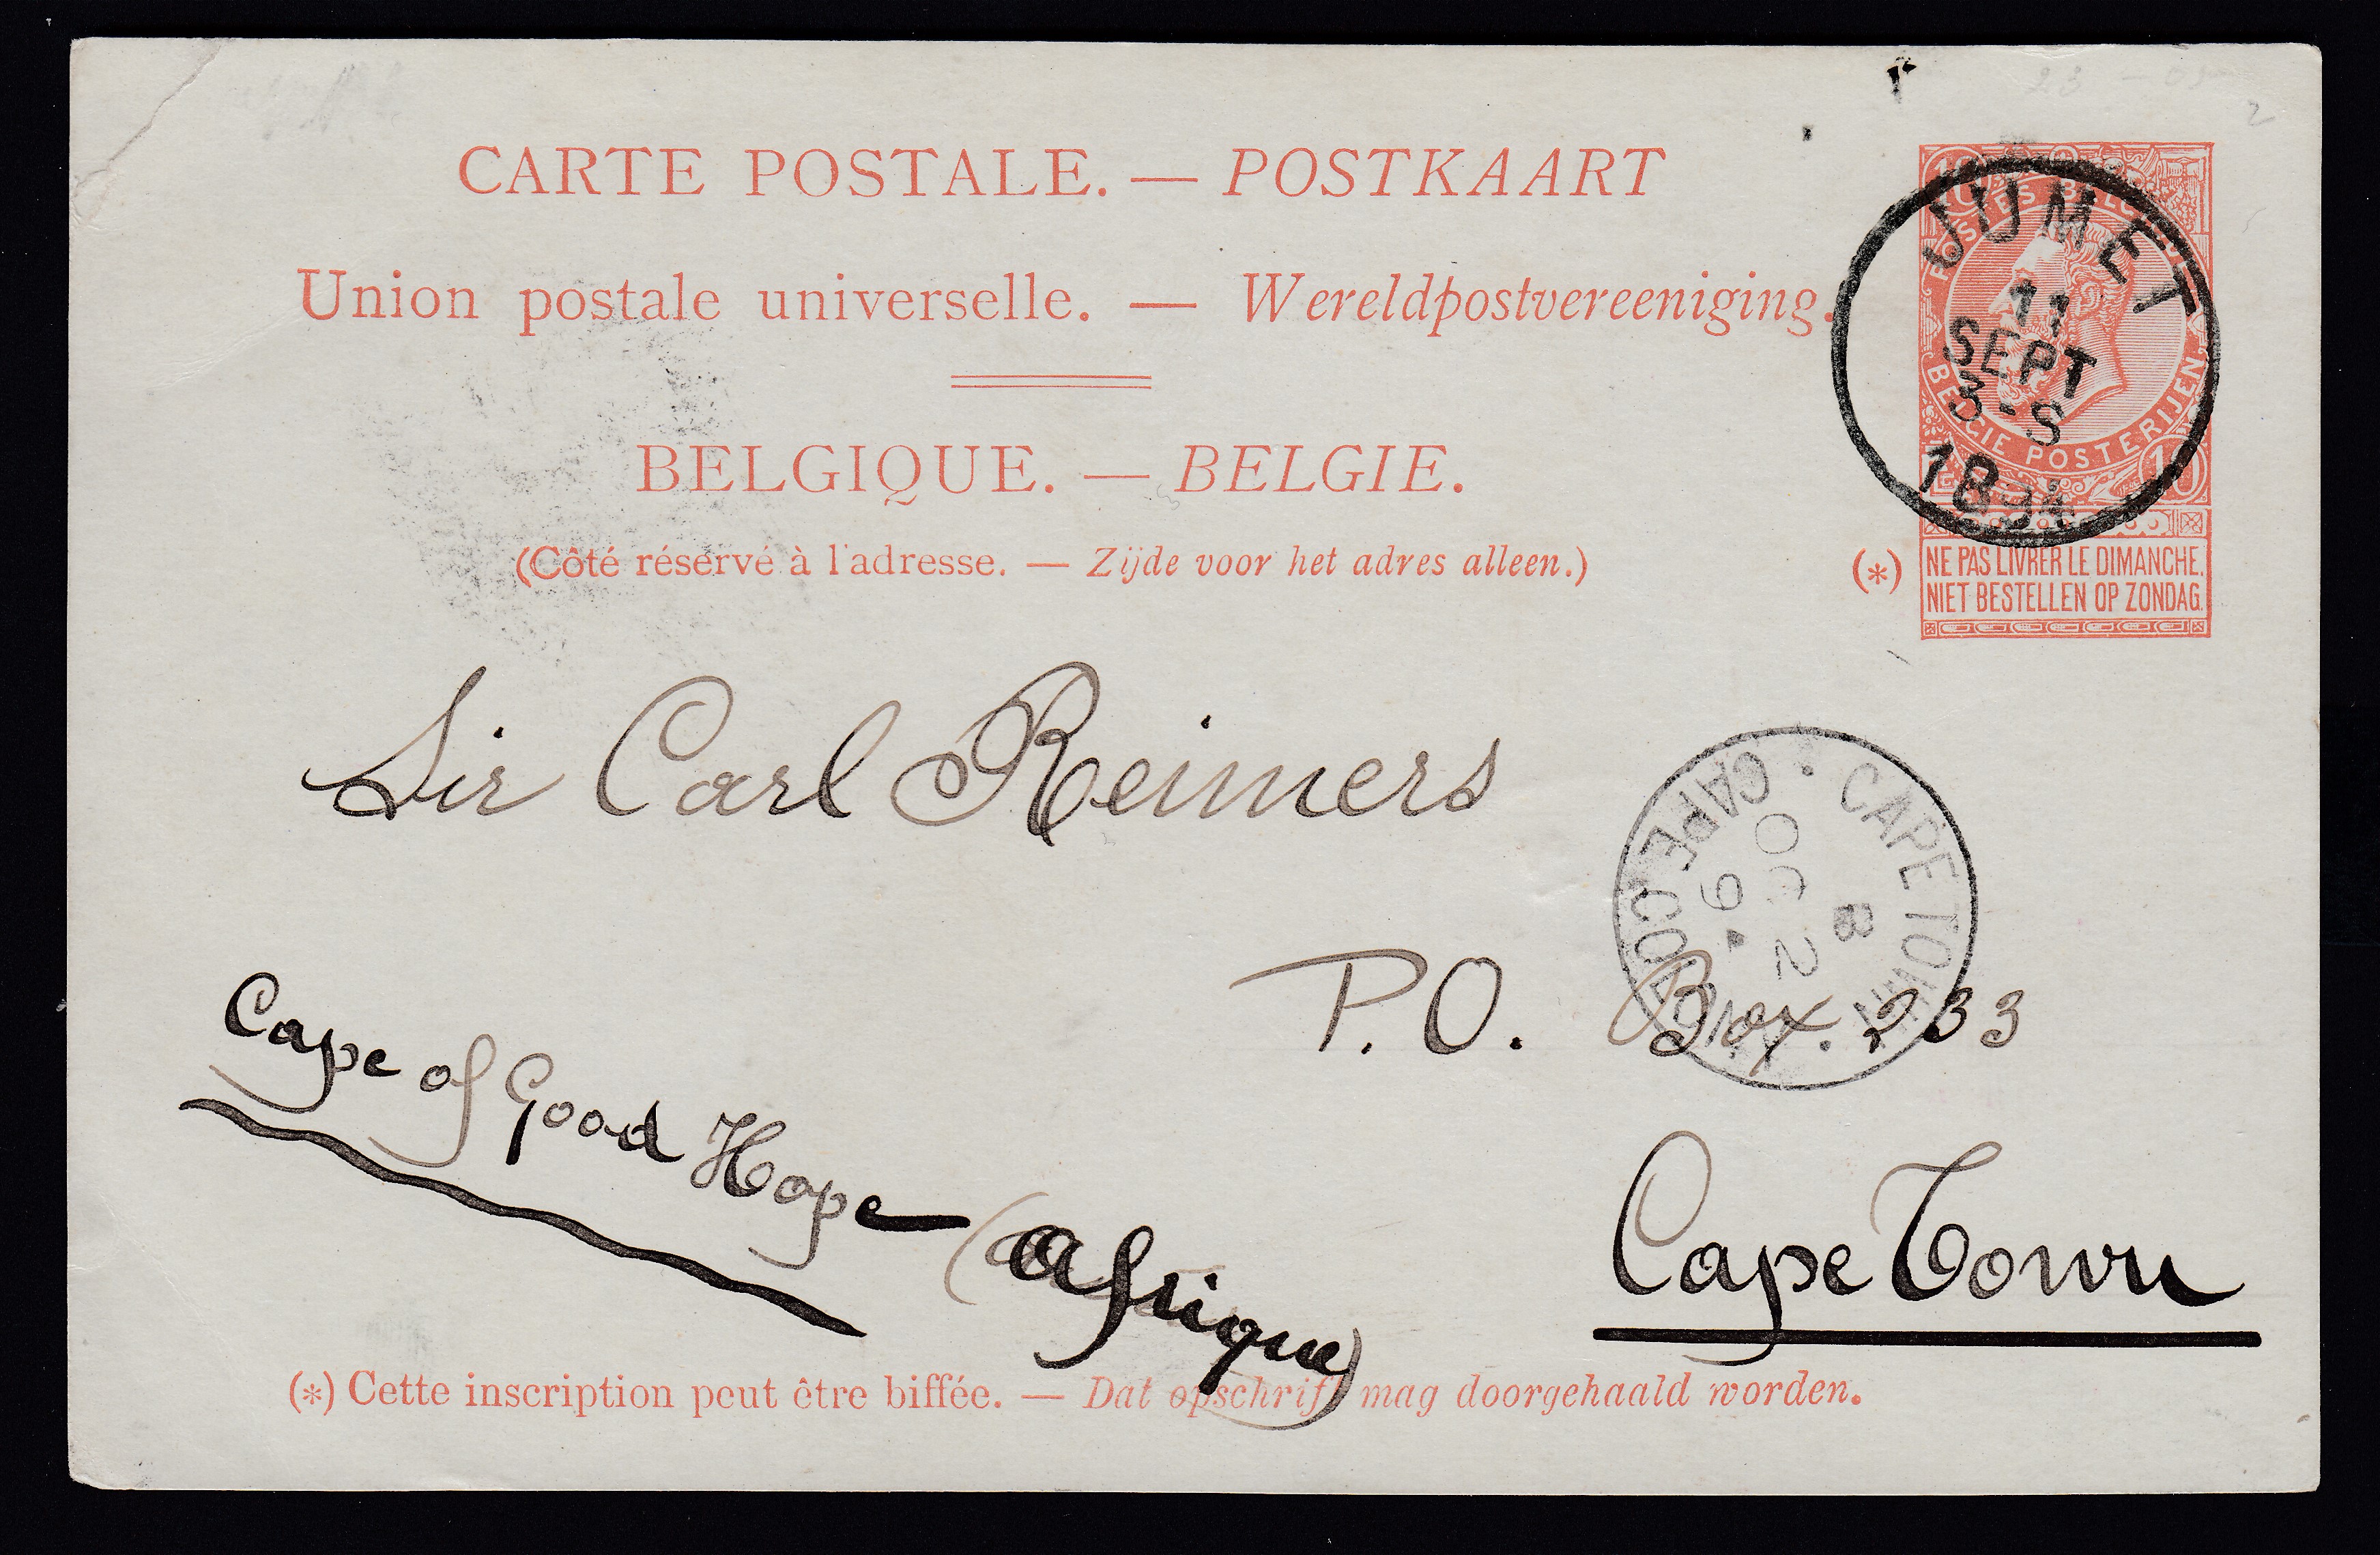 CARTE POSTALE. — POSTKAART
Union postale universelle. — Wereldpostvereeniging.
BELGIQUE. — BELGIE.
(Côté réservé à l'adresse. — Zijde voor het adres alleen.)
10 10
POSTES BELG
BELGIE POSTERIJEN
10
JUMET
11
SEPT
3-S
189
(*) NE PAS LIVRER LE DIMANCHE.
NIET BESTELLEN OP ZONDAG.
Sir Carl Reimers
CAPE TOWN · CAPE COLONY ·
B
OC 2
9
P.O. Box. 233
Cape of Good Hope (Afrique)
Cape Town
(*) Cette inscription peut être biffée. — Dat opschrift mag doorgehaald worden.